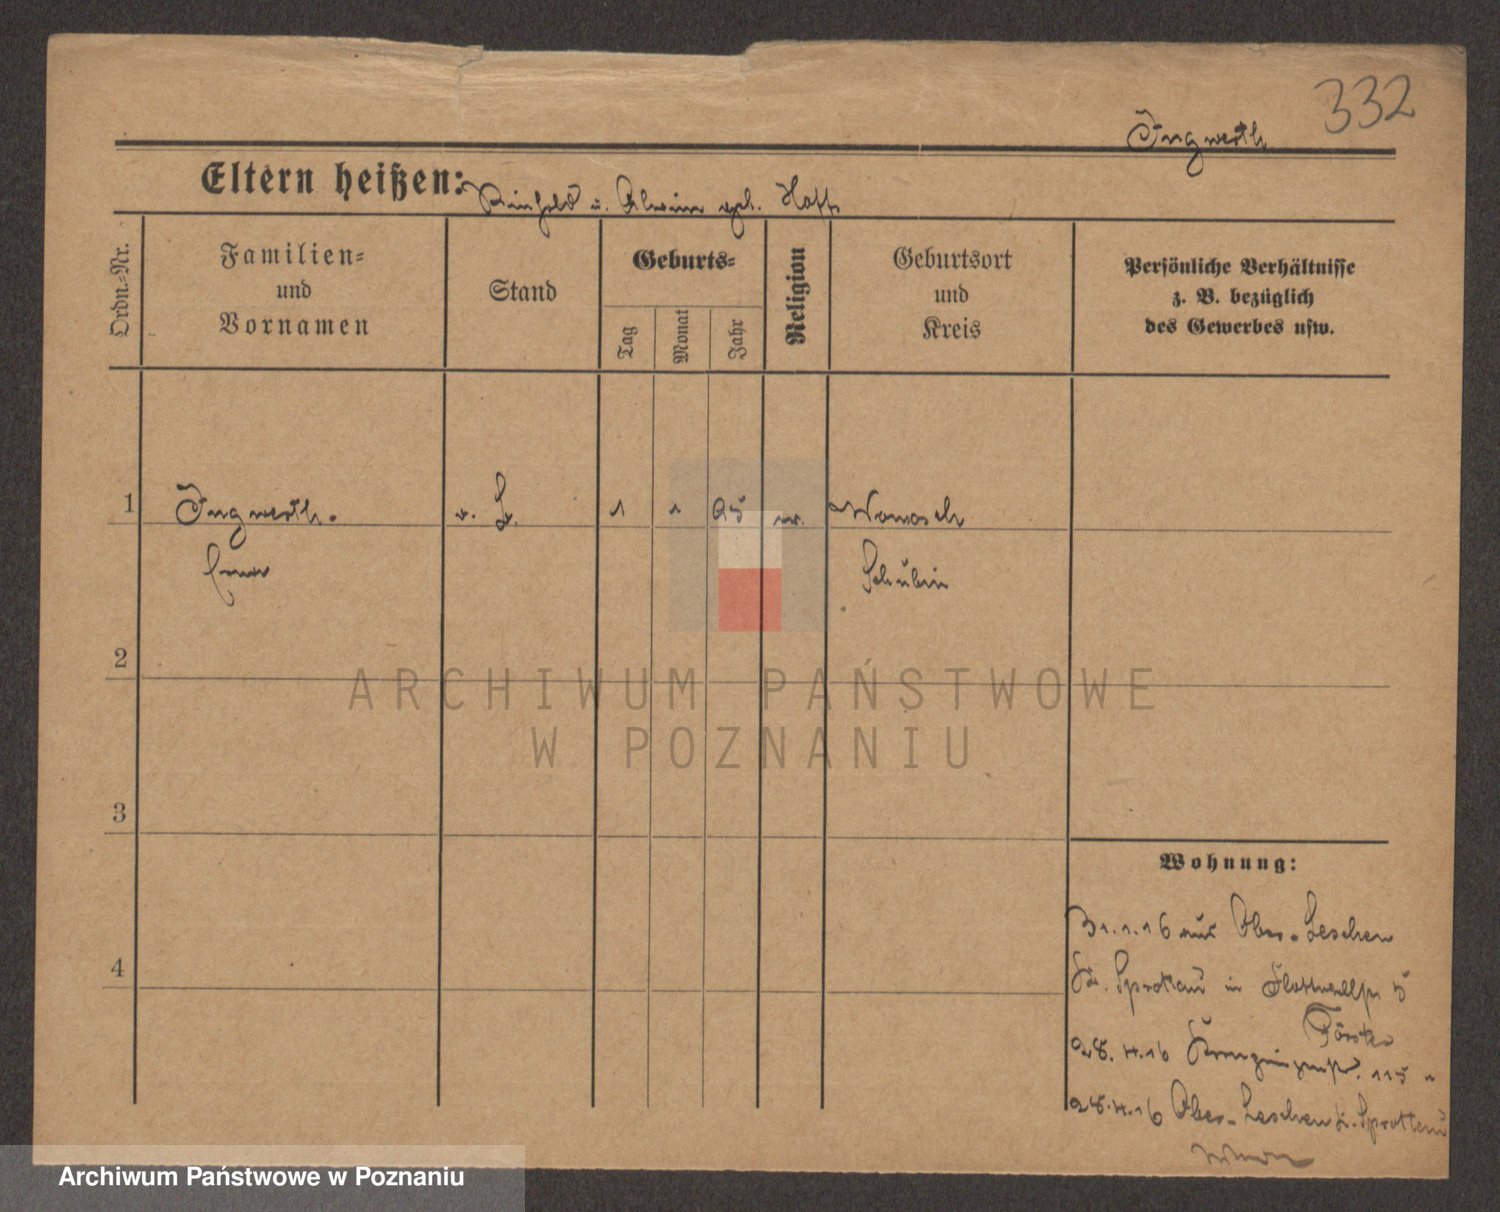 332
Ingwerth
Eltern heißen: Reinhold u. Alwine geb. Hoff
Ordn.-Nr.
Familien-
und
Vornamen
Stand
Geburts-
Tag
Monat
Jahr
Religion
Geburtsort
und
Kreis
Persönliche Verhältnisse
z. B. bezüglich
des Gewerbes usw.
1
Ingwerth.
1 1 95 ev.
Schubin
2
ARCHIWUM PAŃSTWOWE
W POZNANIU
3
Wohnung:
31.1.16 aus Ober-Leschen
Kr. Sprottau in Flottwellstr 5
4
Förster
28.4.16 115 "
28.4.16 Ober-Leschen Kr. Sprottau
Archiwum Państwowe w Poznaniu